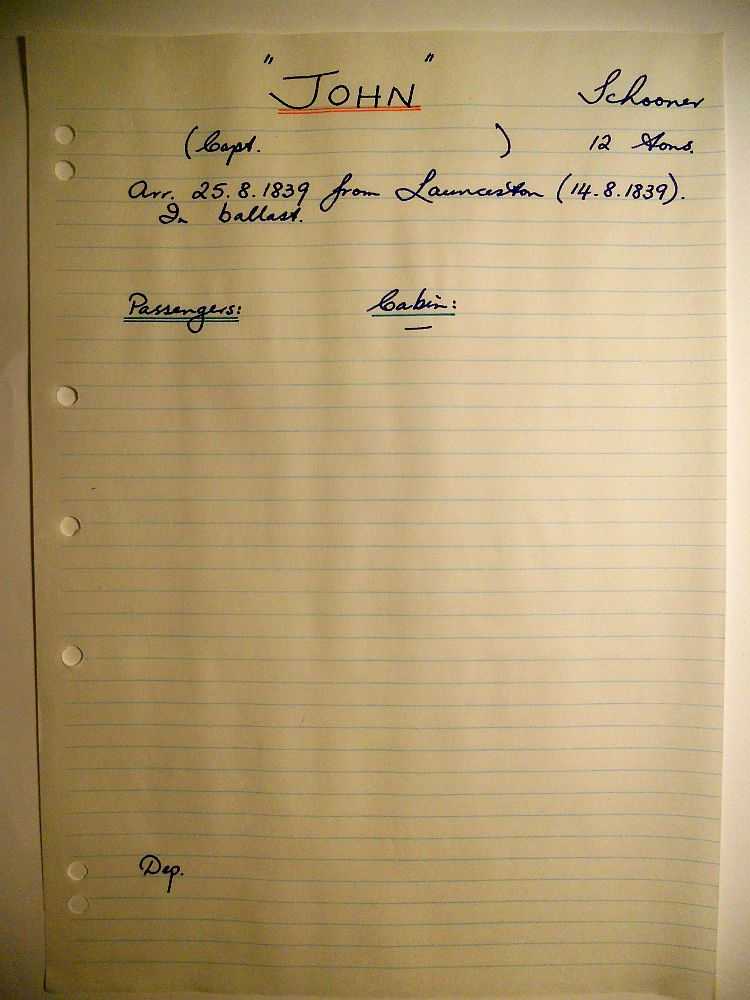 "JOHN" Schooner
(Capt. ) 12 Tons.
Arr. 25.8.1839 from Launceston (14.8.1839).
In ballast.
Passengers: Cabin:
—
Dep.